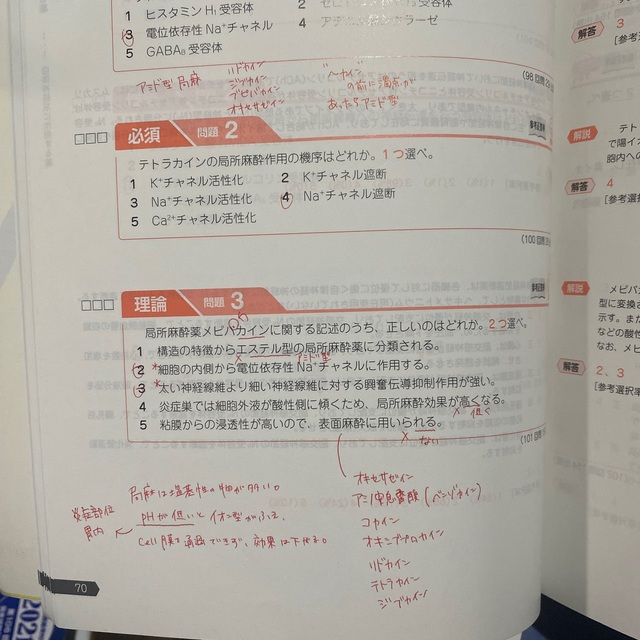 1 ヒスタミン H₁ 受容体
3 電位依存性 Na⁺チャネル
4
5 GABA_B 受容体
アミド型 局麻
リドカイン
ジブカイン
メピバカイン
オキセサゼイン
"ペカイン"
の前に濁点が
あったらアミド型
必須 問題 2
テトラカインの局所麻酔作用の機序はどれか。1つ選べ。
1 K⁺チャネル活性化 2 K⁺チャネル遮断
3 Na⁺チャネル活性化 4 Na⁺チャネル遮断
5 Ca²⁺チャネル活性化
(100 回
理論 問題 3
局所麻酔薬メピバカインに関する記述のうち、正しいのはどれか。2つ選べ。
1 構造の特徴からエステル型の局所麻酔薬に分類される。
× アミド型
2 細胞の内側から電位依存性 Na⁺チャネルに作用する。
3 太い神経線維より細い神経線維に対する興奮伝導抑制作用が強い。
4 炎症巣では細胞外液が酸性側に傾くため、局所麻酔効果が高くなる。
× 低く
5 粘膜からの浸透性が高いので、表面麻酔に用いられる。
× ない
(101 回
局麻は塩基性の物が多い。
炎症部位
胃内
pHが低いとイオン型がふえ、
cell膜を通過できず、効果は下がる。
オキセサゼイン
アミノ安息香酸(ベンゾカイン)
コカイン
オキシブプロカイン
リドカイン
テトラカイン
ジブカイン
70
解答 3
[参考
解説 テト
で陽イオ
胞内へ
解答 4
[参考選
解説 メピバ
型に変換さ
示す。また
などの酸性
なお、メピ
解答 2、3
[参考選択率
2021